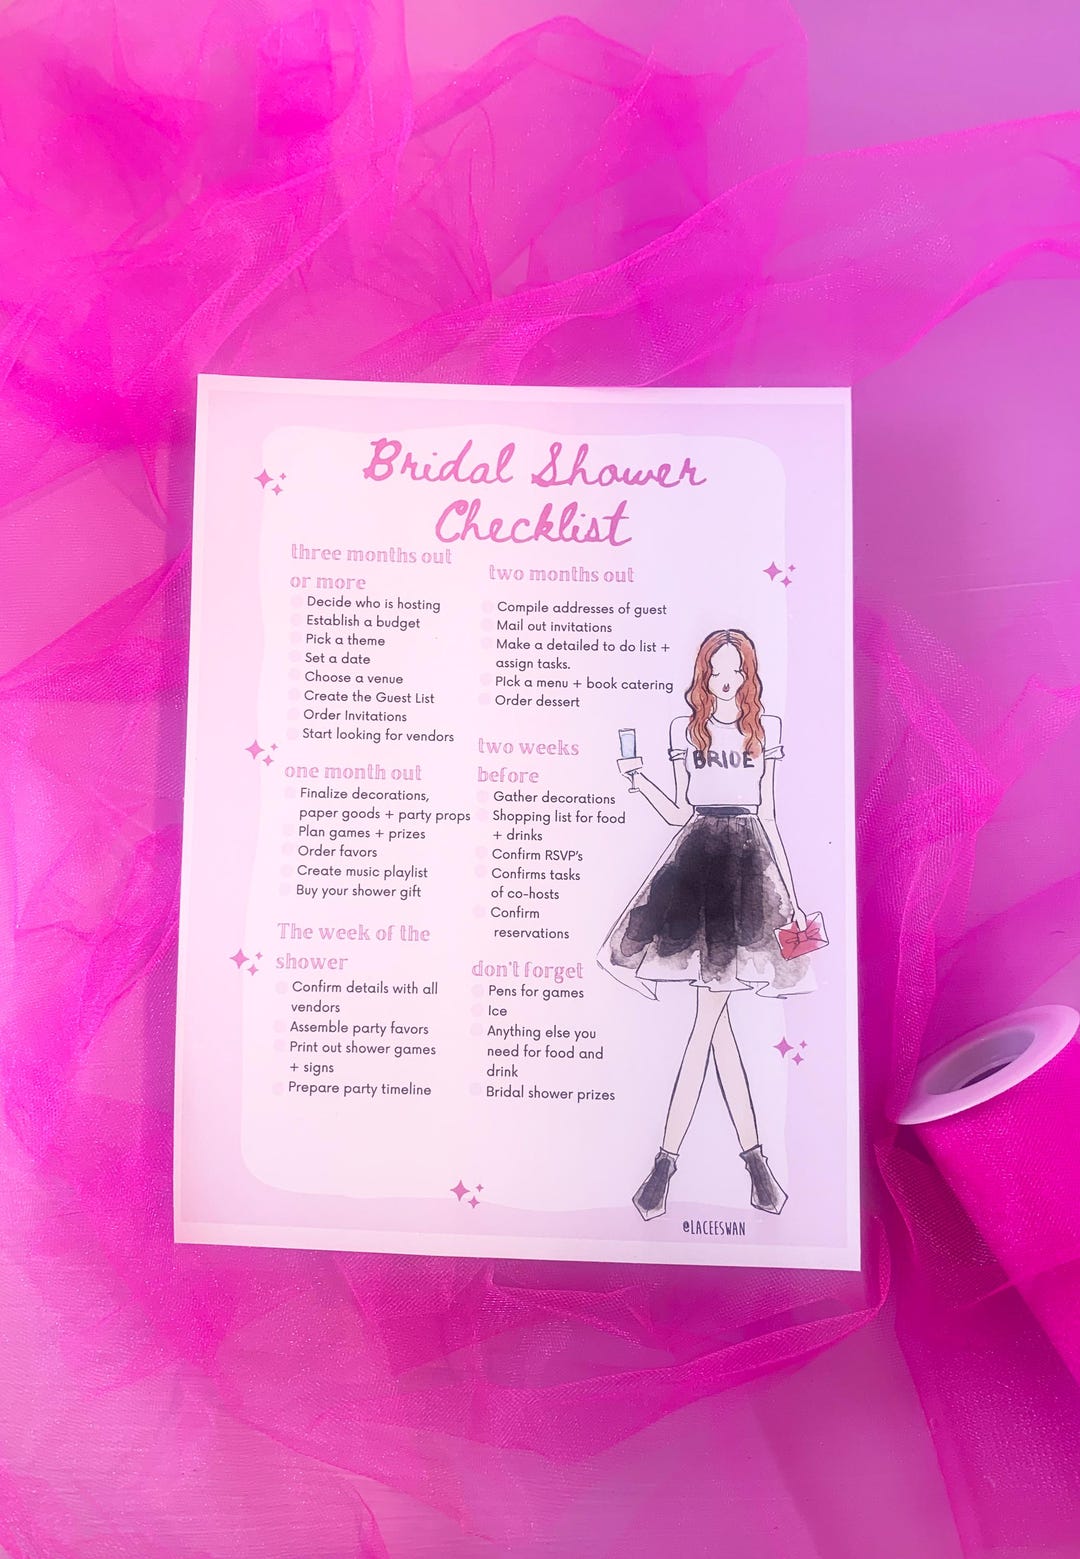 Bridal Shower
Checklist
three months out
or more
Decide who is hosting
Establish a budget
Pick a theme
Set a date
Choose a venue
Create the Guest List
Order Invitations
Start looking for vendors
two months out
Compile addresses of guest
Mail out invitations
Make a detailed to do list +
assign tasks.
PIck a menu + book catering
Order dessert
one month out
Finalize decorations,
paper goods + party props
Plan games + prizes
Order favors
Create music playlist
Buy your shower gift
two weeks
before
Gather decorations
Shopping list for food
+ drinks
Confirm RSVP's
Confirms tasks
of co-hosts
Confirm
reservations
The week of the
shower
Confirm details with all
vendors
Assemble party favors
Print out shower games
+ signs
Prepare party timeline
don't forget
Pens for games
Ice
Anything else you
need for food and
drink
Bridal shower prizes
BRIDE
@LACEESWAN